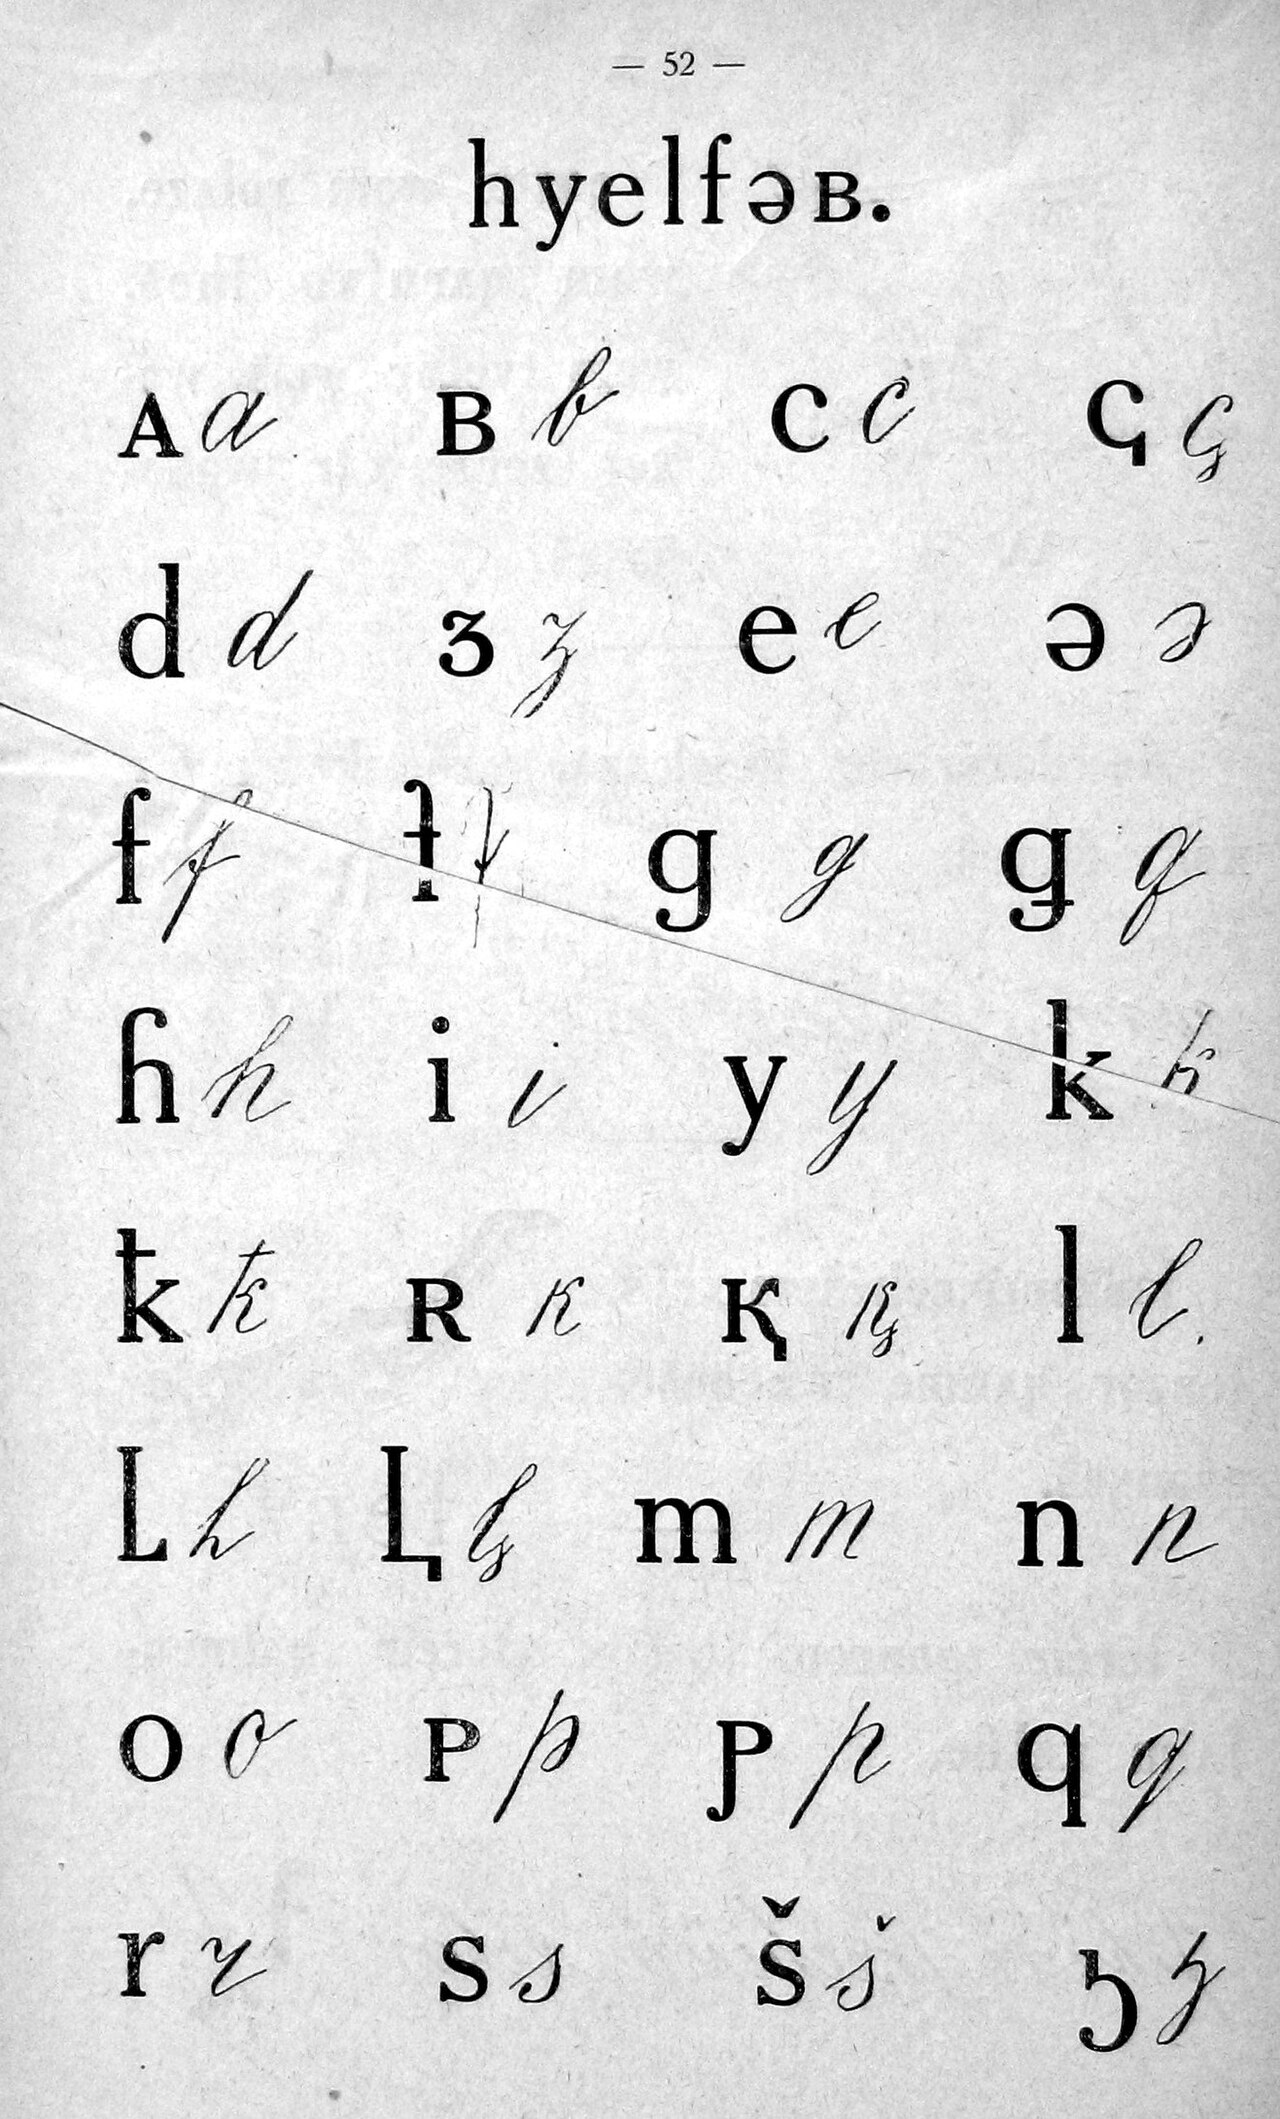 — 52 —
hyelfəʙ.
ᴀ a ʙ b c c ꞔ ꞔ
d d ɜ ɜ e e ə ə
f f ꝉ g g ǥ ǥ
ɦ h i i y y k k
ꝁ ꝁ ʀ ĸ қ қ l l
L h Ļ m m n n
o o ᴘ p ƿ p q q
r r s s š š ҕ